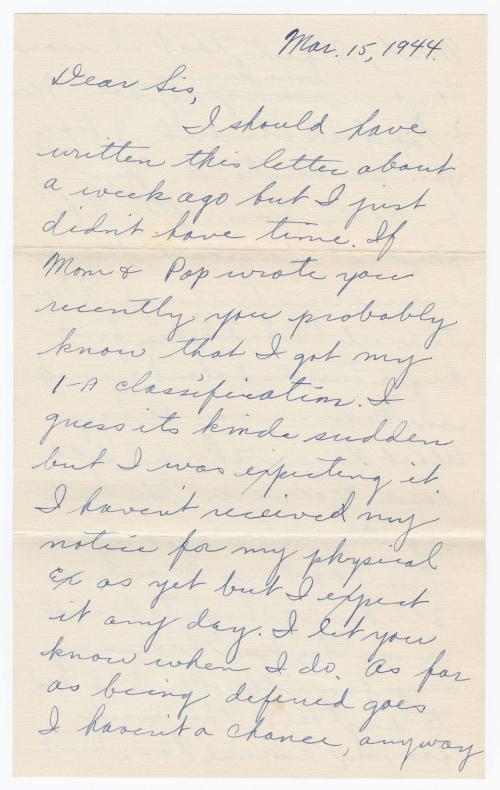 Mar. 15, 1944.
Dear Sis,
I should have
written this letter about
a week ago but I just
didn't have time. If
Mom & Pop wrote you
recently you probably
know that I got my
1-A classification. I
guess its kinda sudden
but I was expecting it.
I haven't received my
notice for my physical
Ex as yet but I expect
it any day. I let you
know when I do. As far
as being deferred goes
I haven't a chance, anyway